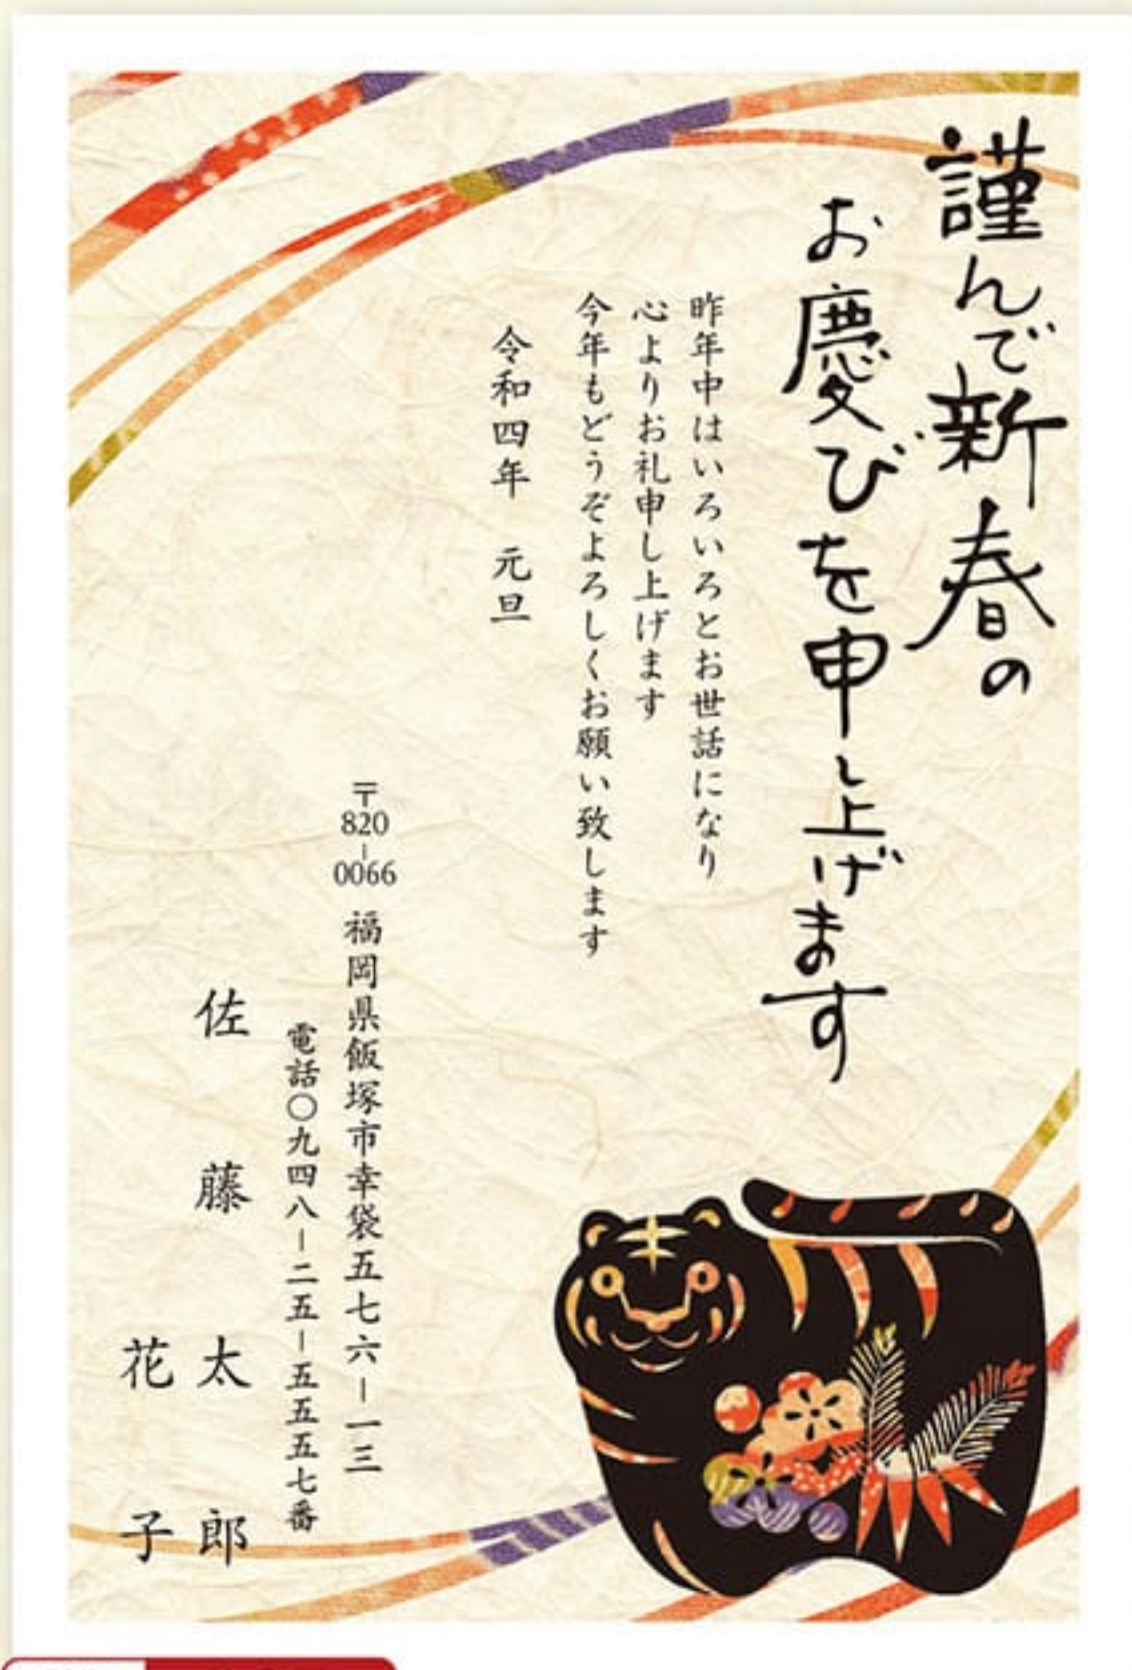 謹んで新春の
お慶びを申し上げます
昨年中はいろいろとお世話になり
心よりお礼申し上げます
今年もどうぞよろしくお願い致します
令和四年　元旦
〒820-0066 福岡県飯塚市幸袋五七六-一三
電話〇九四八-二五-五五五七番
佐藤太郎
花子